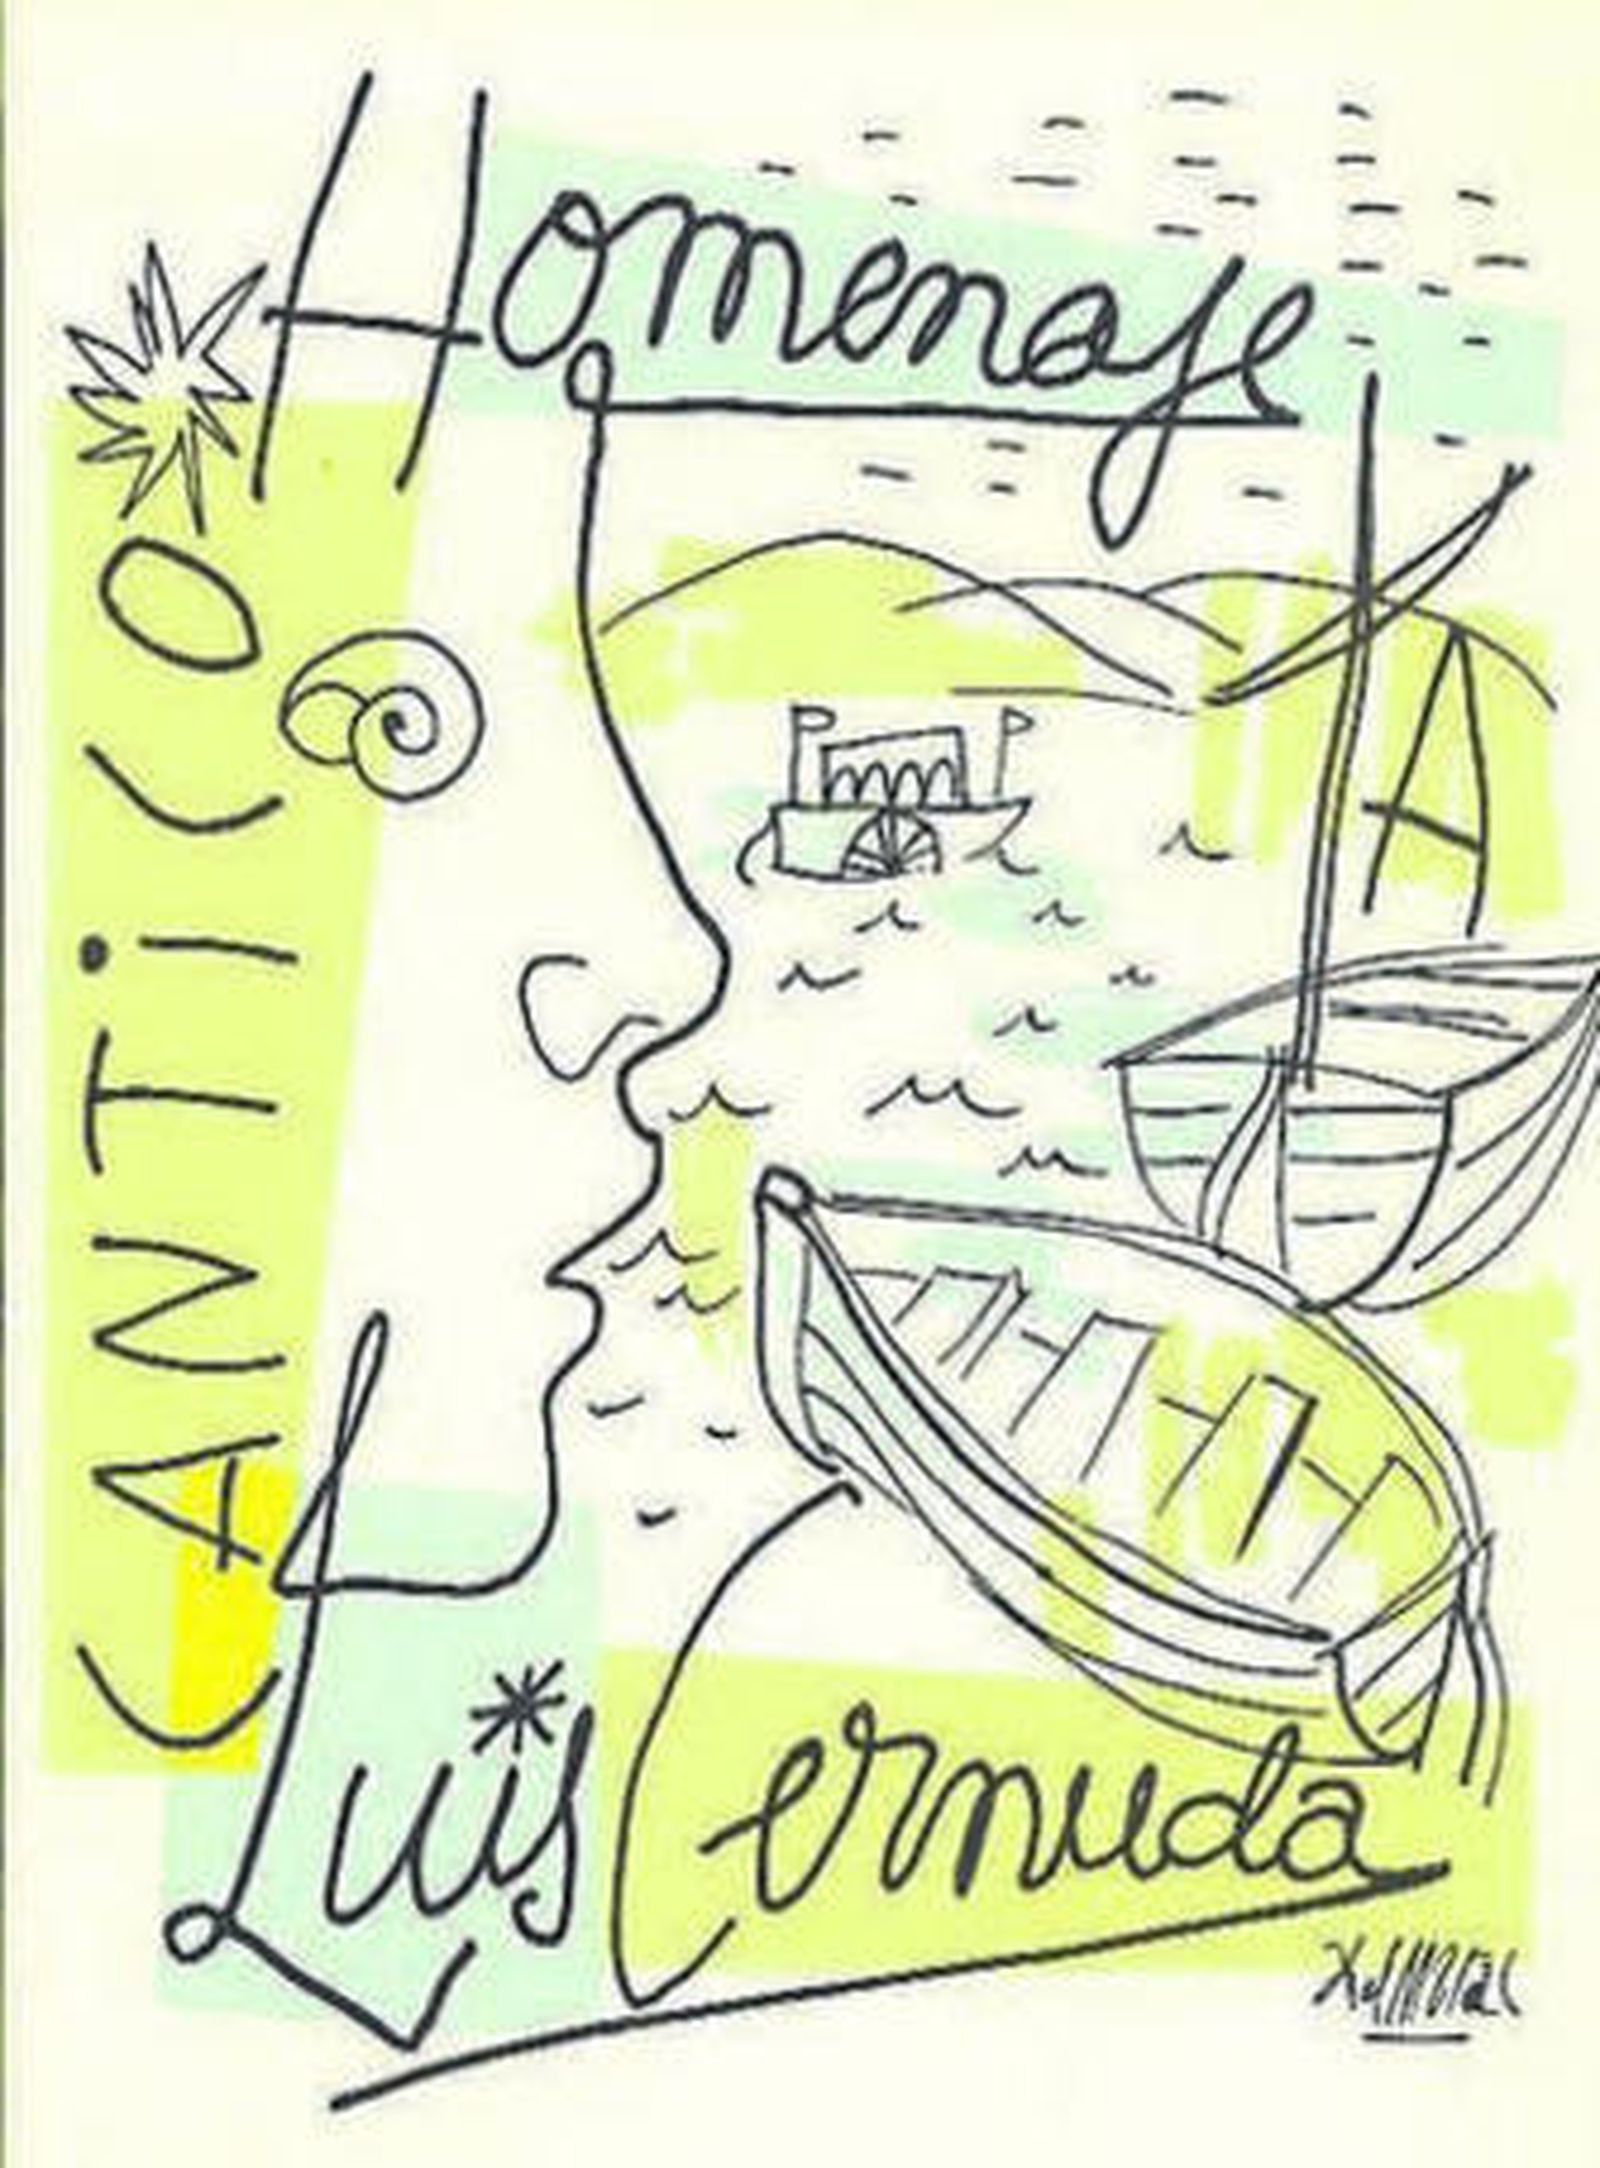 CANTiCO
Homenaje
A
Luis Cernuda